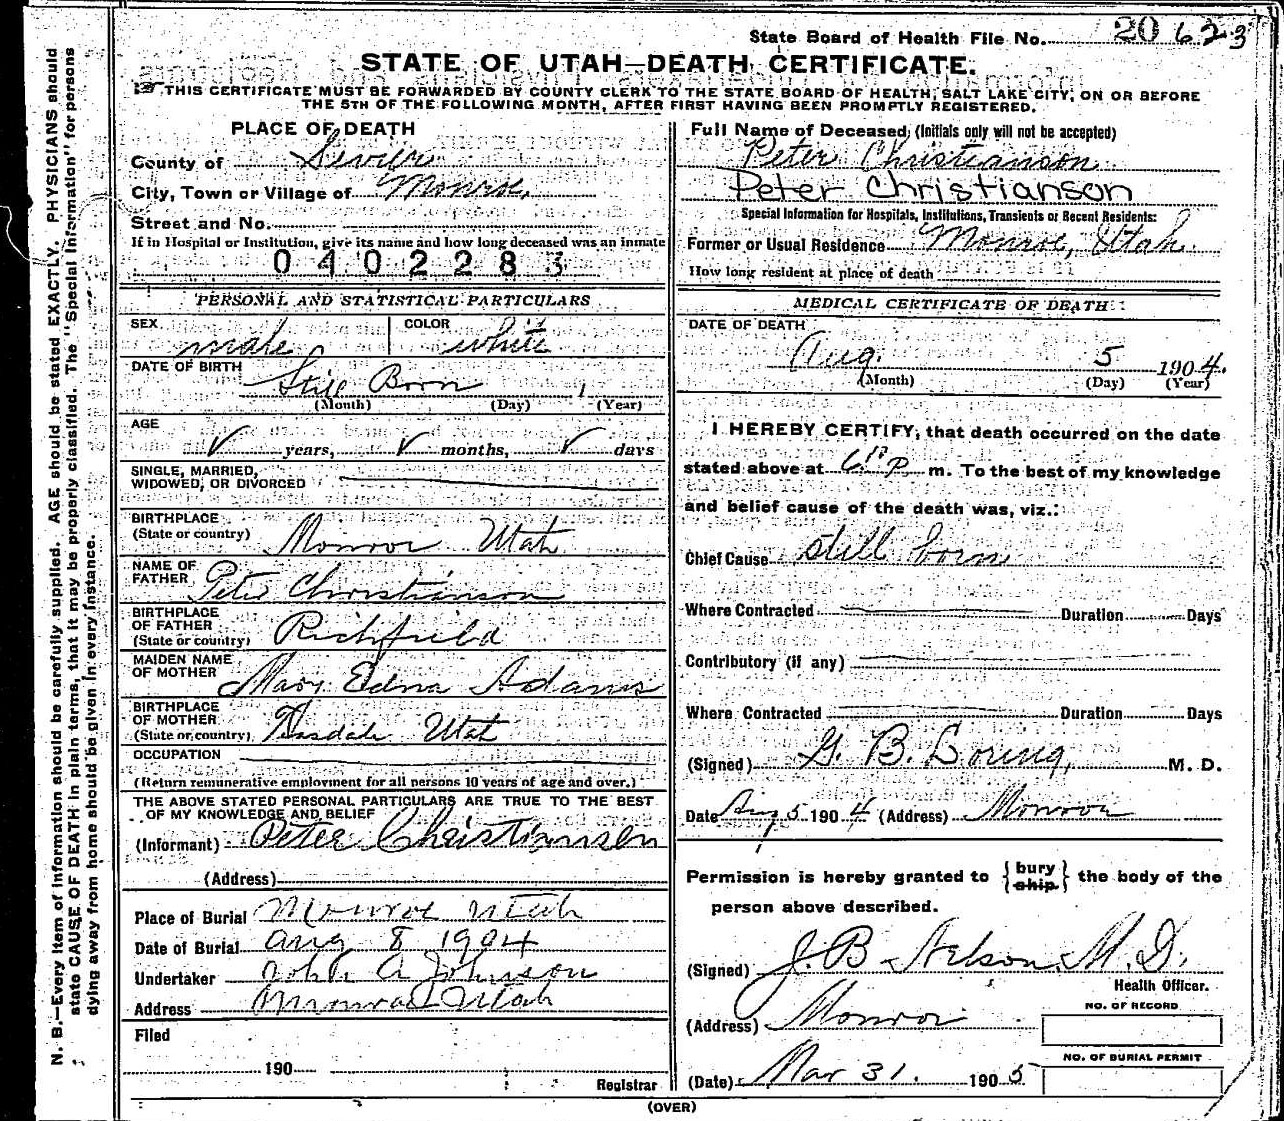 State Board of Health File No. 20 623
STATE OF UTAH—DEATH CERTIFICATE.
THIS CERTIFICATE MUST BE FORWARDED BY COUNTY CLERK TO THE STATE BOARD OF HEALTH, SALT LAKE CITY, ON OR BEFORE
THE 5TH OF THE FOLLOWING MONTH, AFTER FIRST HAVING BEEN PROMPTLY REGISTERED.
PLACE OF DEATH
County of Sevier
City, Town or Village of Monroe,
Street and No.
If in Hospital or Institution, give its name and how long deceased was an inmate
0402283
PERSONAL AND STATISTICAL PARTICULARS
SEX male COLOR white
DATE OF BIRTH Still Born 1
(Month) (Day) (Year)
AGE
✓ years, ✓ months, ✓ days
SINGLE, MARRIED,
WIDOWED, OR DIVORCED
BIRTHPLACE
(State or country) Monroe Utah
NAME OF
FATHER Peter Christianson
BIRTHPLACE
OF FATHER
(State or country) Richfield
MAIDEN NAME
OF MOTHER Mary Edna Adams
BIRTHPLACE
OF MOTHER
(State or country) Teasdale Utah
OCCUPATION
(Return remunerative employment for all persons 10 years of age and over.)
THE ABOVE STATED PERSONAL PARTICULARS ARE TRUE TO THE BEST
OF MY KNOWLEDGE AND BELIEF
(Informant) Peter Christiansen
(Address)
Place of Burial Monroe Utah
Date of Burial Aug 8 1904
Undertaker John A Johnson
Address Monroe Utah
Filed
190
Registrar
Full Name of Deceased, (Initials only will not be accepted)
Peter Christianson
Peter Christianson
Special Information for Hospitals, Institutions, Transients or Recent Residents:
Former or Usual Residence Monroe, Utah.
How long resident at place of death
MEDICAL CERTIFICATE OF DEATH
DATE OF DEATH
Aug. 5 1904.
(Month) (Day) (Year)
I HEREBY CERTIFY, that death occurred on the date
stated above at 6 10 P m. To the best of my knowledge
and belief cause of the death was, viz.:
Chief Cause still born
Where Contracted Duration Days
Contributory (if any)
Where Contracted Duration Days
(Signed) G. B. Loring, M. D.
Date Aug 5 1904 (Address) Monroe
Permission is hereby granted to {bury ship} the body of the
person above described.
(Signed) J. B Nelson M. D.
Health Officer.
NO. OF RECORD
(Address) Monroe
NO. OF BURIAL PERMIT
(Date) Mar 31. 1905
(OVER)
N. B.—Every item of information should be carefully supplied. AGE should be stated EXACTLY. PHYSICIANS should
state CAUSE OF DEATH in plain terms, that it may be properly classified. The "Special Information" for persons
dying away from home should be given in every instance.